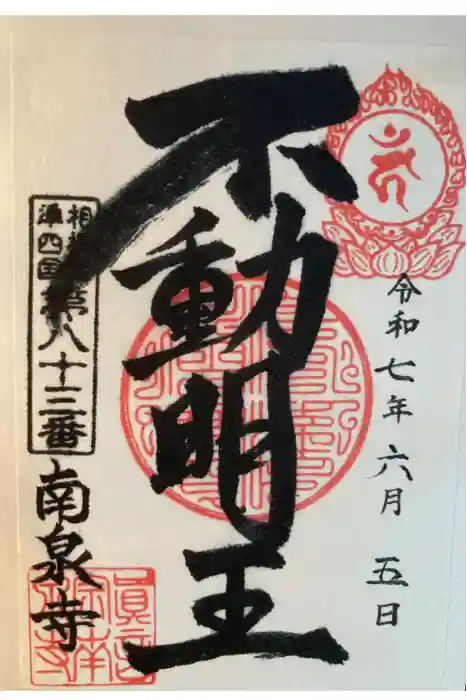 令和七年六月五日
不動明王
相
準四国
第八十三番
南泉寺